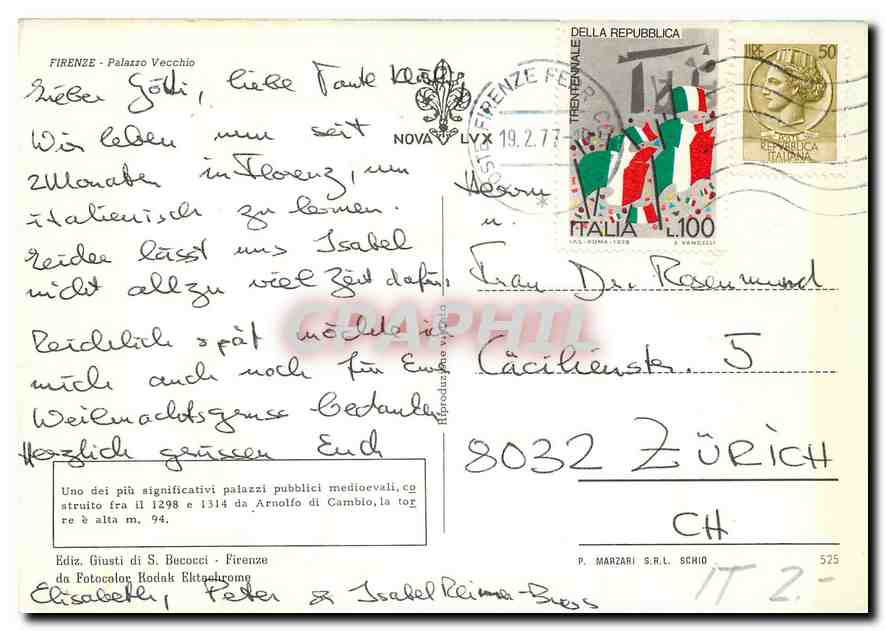 FIRENZE - Palazzo Vecchio
Lieber Götti, liebe Tante
Wir leben nun seit
2 Monaten in Florenz, um
italienisch zu lernen.
Leider lässt uns Isabel
nicht allzu viel Zeit dafür.
Reichlich spät möchte ich
mich auch noch für Eure
Weihnachtsgrüsse bedanken
Herzlich grüssen Euch
Uno dei più significativi palazzi pubblici medioevali, co
struito fra il 1298 e 1314 da Arnolfo di Cambio, la tor
re è alta m. 94.
Ediz. Giusti di S. Becocci - Firenze
da Fotocolor Kodak Ektachrome
Elisabeth, Peter & Isabel
NOVA LVX
Riproduzione vietata
FIRENZE FERR.
19.2.77
TRENTENNALE
DELLA REPUBBLICA
ITALIA L.100
I.P.S.-ROMA-1976 E. VANGELLI
LIRE 50
REPVBBLICA
ITALIANA
Herrn
u.
Frau Dr. Rosenmund
Cäcilienstr. 5
8032 ZÜRICH
CH
P. MARZARI S.R.L. SCHIO 525
IT 2.-
CPAPHIL